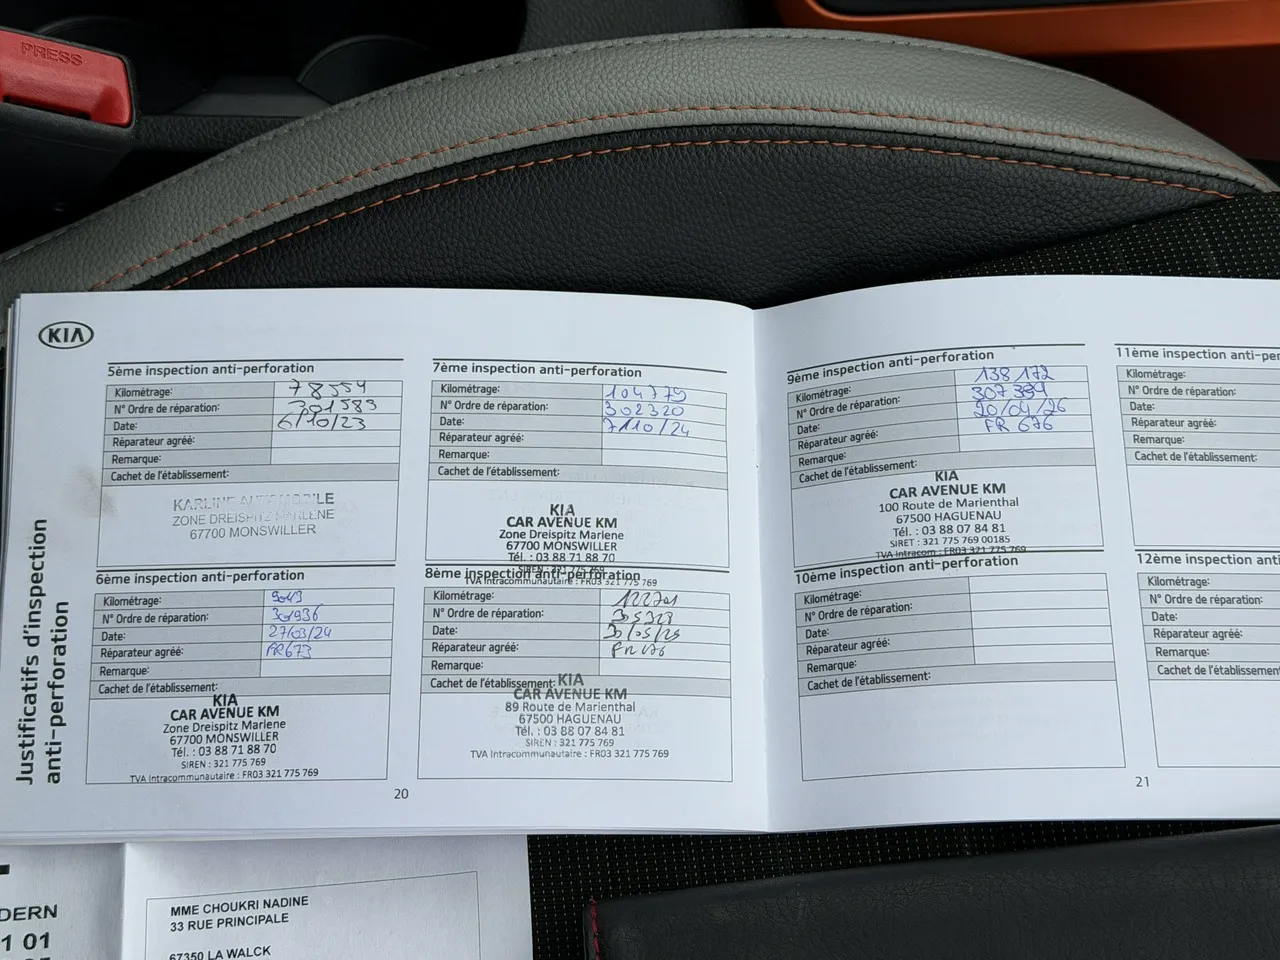 PRESS
KIA
Justificatifs d'inspection
anti-perforation
5ème inspection anti-perforation
Kilométrage: 78554
N° Ordre de réparation: 301583
Date: 6/10/23
Réparateur agréé:
Remarque:
Cachet de l'établissement:
KARLINE AUTOMOBILE
ZONE DREISPITZ MARLENE
67700 MONSWILLER
6ème inspection anti-perforation
Kilométrage:
N° Ordre de réparation: 301936
Date: 27/03/24
Réparateur agréé: FR673
Remarque:
Cachet de l'établissement:
KIA
CAR AVENUE KM
Zone Dreispitz Marlene
67700 MONSWILLER
Tél. : 03 88 71 88 70
SIREN : 321 775 769
TVA Intracommunautaire : FR03 321 775 769
7ème inspection anti-perforation
Kilométrage: 104779
N° Ordre de réparation: 302320
Date: 7/10/24
Réparateur agréé:
Remarque:
Cachet de l'établissement:
KIA
CAR AVENUE KM
Zone Dreispitz Marlene
67700 MONSWILLER
Tél. : 03 88 71 88 70
SIREN : 321 775 769
TVA Intracommunautaire : FR03 321 775 769
8ème inspection anti-perforation
Kilométrage: 122701
N° Ordre de réparation: 305328
Date: 30/05/25
Réparateur agréé: FR676
Remarque:
Cachet de l'établissement:
KIA
CAR AVENUE KM
89 Route de Marienthal
67500 HAGUENAU
Tél. : 03 88 07 84 81
SIREN : 321 775 769
TVA Intracommunautaire : FR03 321 775 769
20
9ème inspection anti-perforation
Kilométrage: 138 172
N° Ordre de réparation: 307 394
Date: 20/04/26
Réparateur agréé: FR 676
Remarque:
Cachet de l'établissement:
KIA
CAR AVENUE KM
100 Route de Marienthal
67500 HAGUENAU
Tél. : 03 88 07 84 81
SIRET : 321 775 769 00185
TVA Intracom : FR03 321 775 769
10ème inspection anti-perforation
Kilométrage:
N° Ordre de réparation:
Date:
Réparateur agréé:
Remarque:
Cachet de l'établissement:
11ème inspection anti-per
Kilométrage:
N° Ordre de réparation:
Date:
Réparateur agréé:
Remarque:
Cachet de l'établissement:
12ème inspection anti
Kilométrage:
N° Ordre de réparation:
Date:
Réparateur agréé:
Remarque:
Cachet de l'établissement:
21
DERN
1 01
MME CHOUKRI NADINE
33 RUE PRINCIPALE
67350 LA WALCK